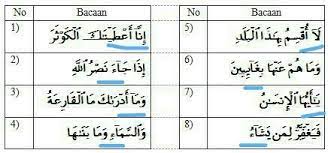 No Bacaan No Bacaan
1) إِنَّا أَعْطَيْنَاكَ الْكَوْثَرَ 5) لَا أُقْسِمُ بِهَذَا الْبَلَدِ
2) إِذَا جَاءَ نَصْرُ اللَّهِ 6) وَمَا هُمْ عَنْهَا بِغَائِبِينَ
3) وَمَا أَدْرَاكَ مَا الْقَارِعَةُ 7) يَا أَيُّهَا الْإِنْسَانُ
4) وَالسَّمَاءِ وَمَا بَنَاهَا 8) فَيَغْفِرُ لِمَنْ يَشَاءُ